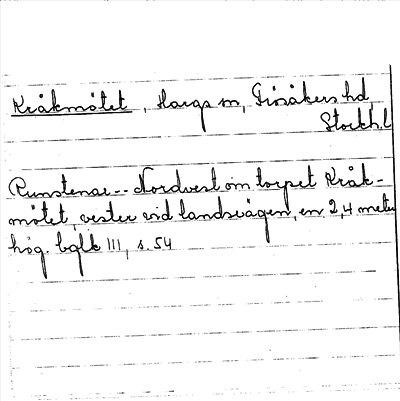 Kråkmötet, Harga m, Finåkers hd,
Stockh.l
Runstenar -- Nordvest om torpet Kråk-
mötet, vester vid landsvägen, en 2,4 meter
hög. bglk III, s. 54